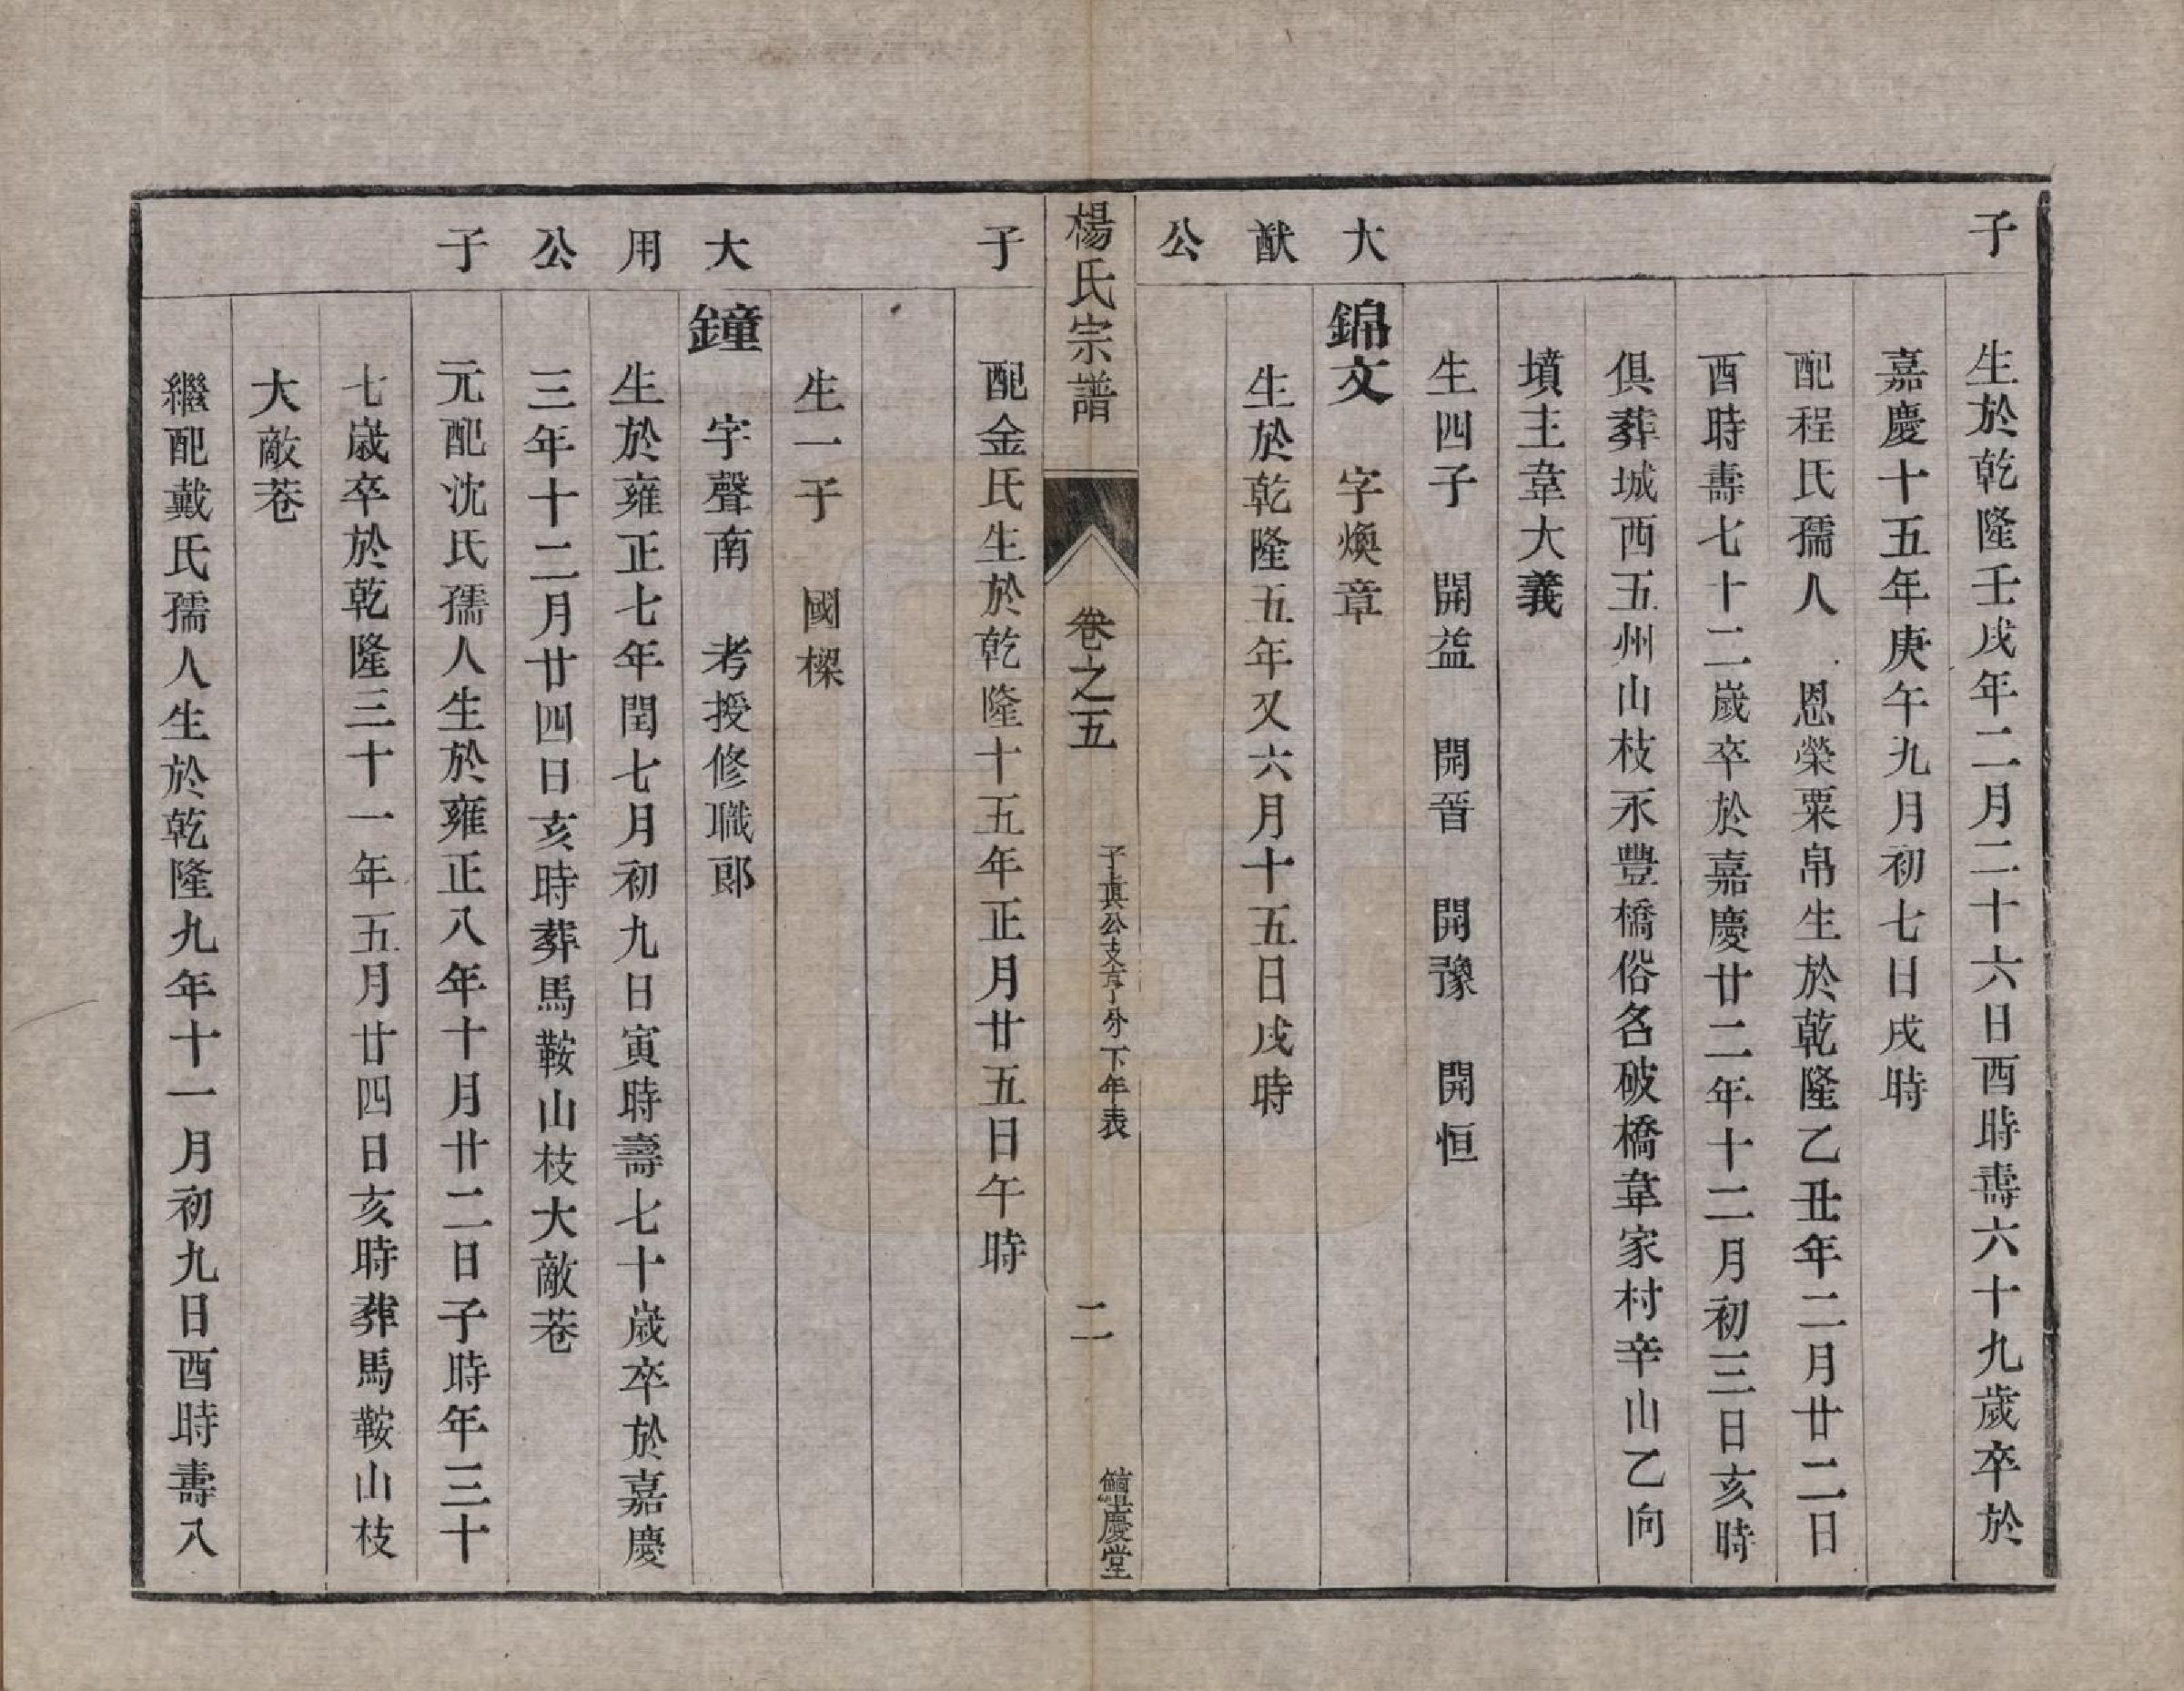 子
生於乾隆壬戌年二月二十六日酉時壽六十九歲卒於
嘉慶十五年庚午九月初七日戌時
配程氏孺人 恩榮粟帛生於乾隆乙丑年二月廿二日
酉時壽七十二歲卒於嘉慶廿二年十二月初三日亥時
俱葬城西五州山枝永豐橋俗名破橋韋家村辛山乙向
墳主韋大義
生四子 開益 開晉 開豫 開恒
大猷公
錦文 字煥章
生於乾隆五年又六月十五日戌時
楊氏宗譜 卷之五 子真公支亨分下年表 二 鱣慶堂
子
配金氏生於乾隆十五年正月廿五日午時
生一子 國樑
大用公子
鐘 字聲南 考授修職郎
生於雍正七年閏七月初九日寅時壽七十歲卒於嘉慶
三年十二月廿四日亥時葬馬鞍山枝大敵巷
元配沈氏孺人生於雍正八年十月廿二日子時年三十
七歲卒於乾隆三十一年五月廿四日亥時葬馬鞍山枝
大敵巷
繼配戴氏孺人生於乾隆九年十一月初九日酉時壽八